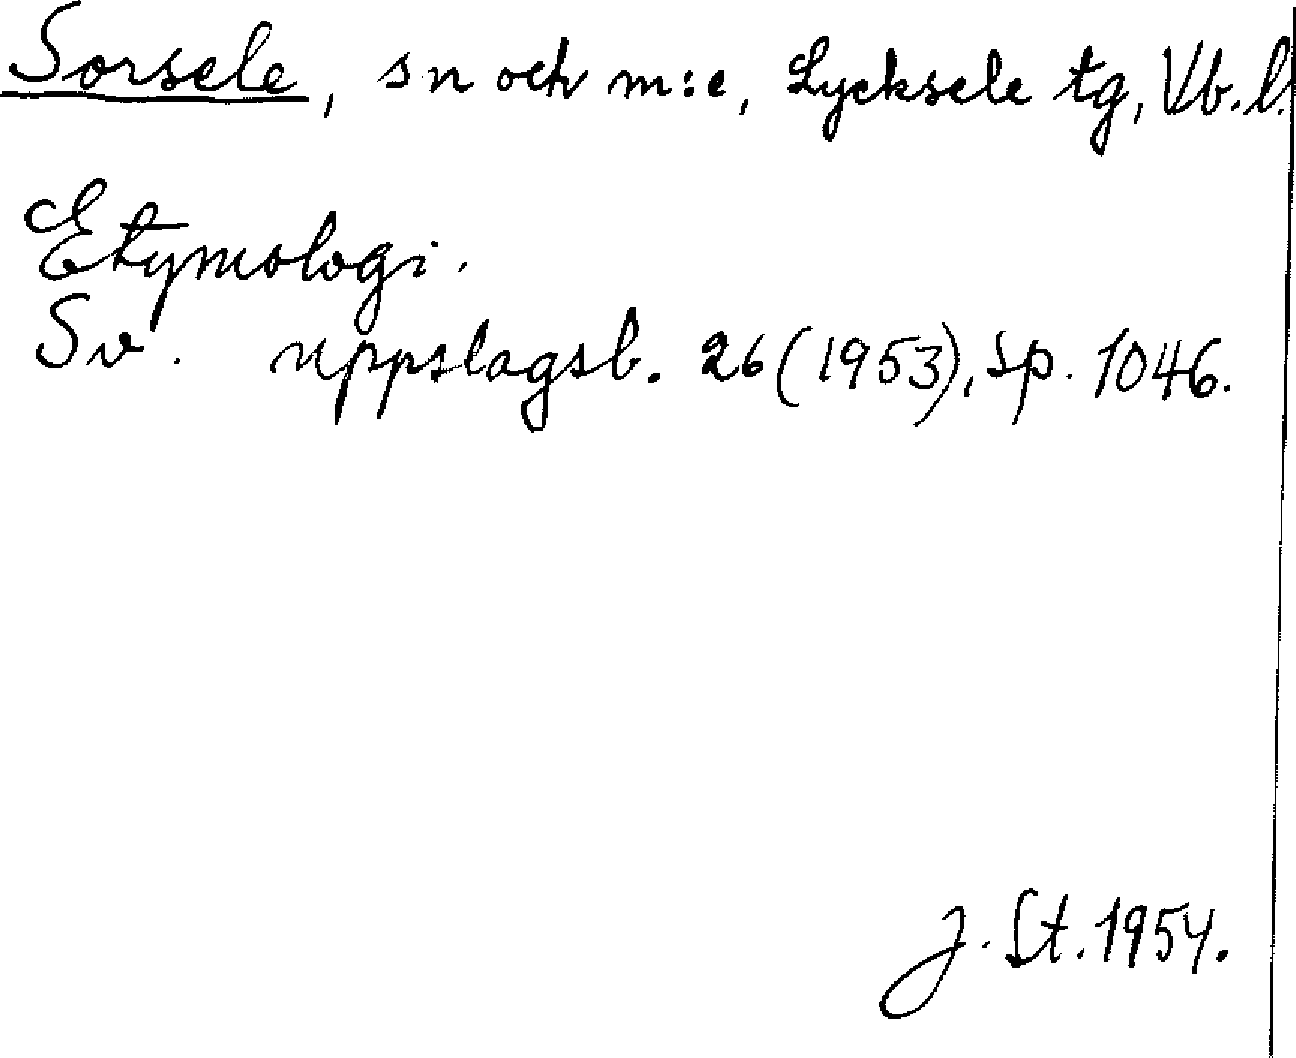 Sorsele, sn och m:e, Lycksele tg, Vb. l.
Etymologi.
Sv. uppslagsb. 26 (1953), sp. 1046.
J. St. 1954.